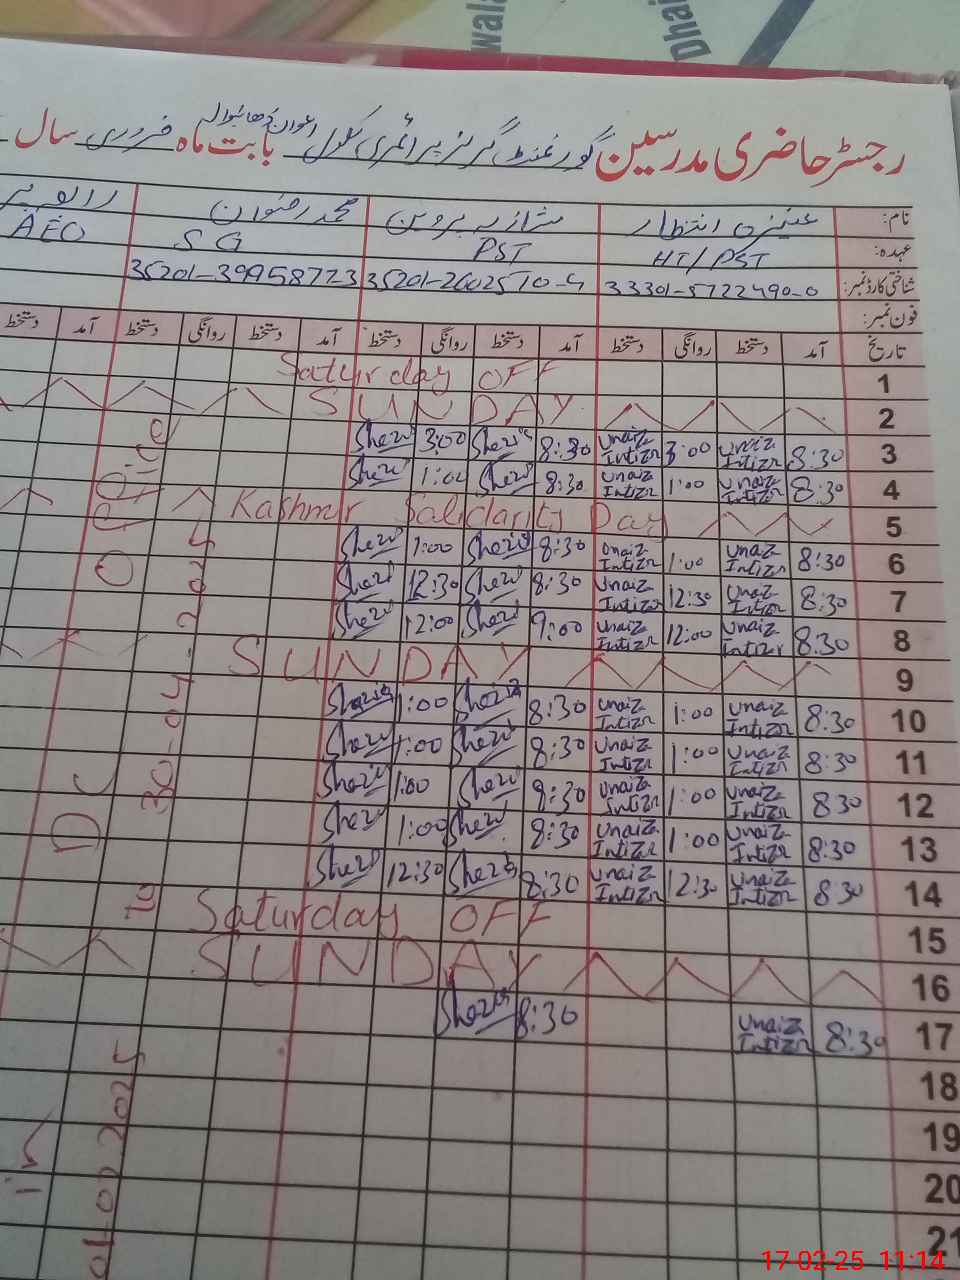 wala
Dhai
رجسٹر حاضری مدرسین گورنمنٹ گرلز پرائمری سکول اعوان ڈھائیوالہ بابت ماہ فروری سال
نام: عنیزہ انتظار شازیہ پروین محمد رضوان
عہدہ: HT/PST PST S G AEO
شناختی کارڈ نمبر: 33301-5722490-0 35201-2602510-4 35201-3995877-3
فون نمبر:
تاریخ آمد دستخط روانگی دستخط آمد دستخط روانگی دستخط آمد دستخط روانگی دستخط آمد دستخط
1 Saturday OFF
2 SUNDAY
3 8:30 Unaiza Intizr 3:00 Unaiza Intizr 8:30 3:00
4 8:30 Unaiza Intizr 1:00 Unaiza Intizr 8:30 1:00
5 Kashmir Salidarity Day
6 8:30 Unaiza Intizr 1:00 Unaiza Intizr 8:30 1:00
7 8:30 Unaiza Intizr 12:30 Unaiza Intizr 8:30 12:30
8 8:30 Unaiza Intizr 12:00 Unaiza Intizr 9:00 12:00
9 SUNDAY
10 8:30 Unaiza Intizr 1:00 Unaiza Intizr 8:30 1:00
11 8:30 Unaiza Intizr 1:00 Unaiza Intizr 8:30 1:00
12 830 Unaiza Intizr 1:00 Unaiza Intizr 8:30 1:00
13 8:30 Unaiza Intizr 1:00 Unaiza Intizr 8:30 1:00
14 830 Unaiza Intizr 12:30 Unaiza Intizr 8:30 12:30
15 Saturday OFF
16 SUNDAY
17 8:30 Unaiza Intizr 8:30
18
19
20
21
in DC Office
to
17-02-25 11:14